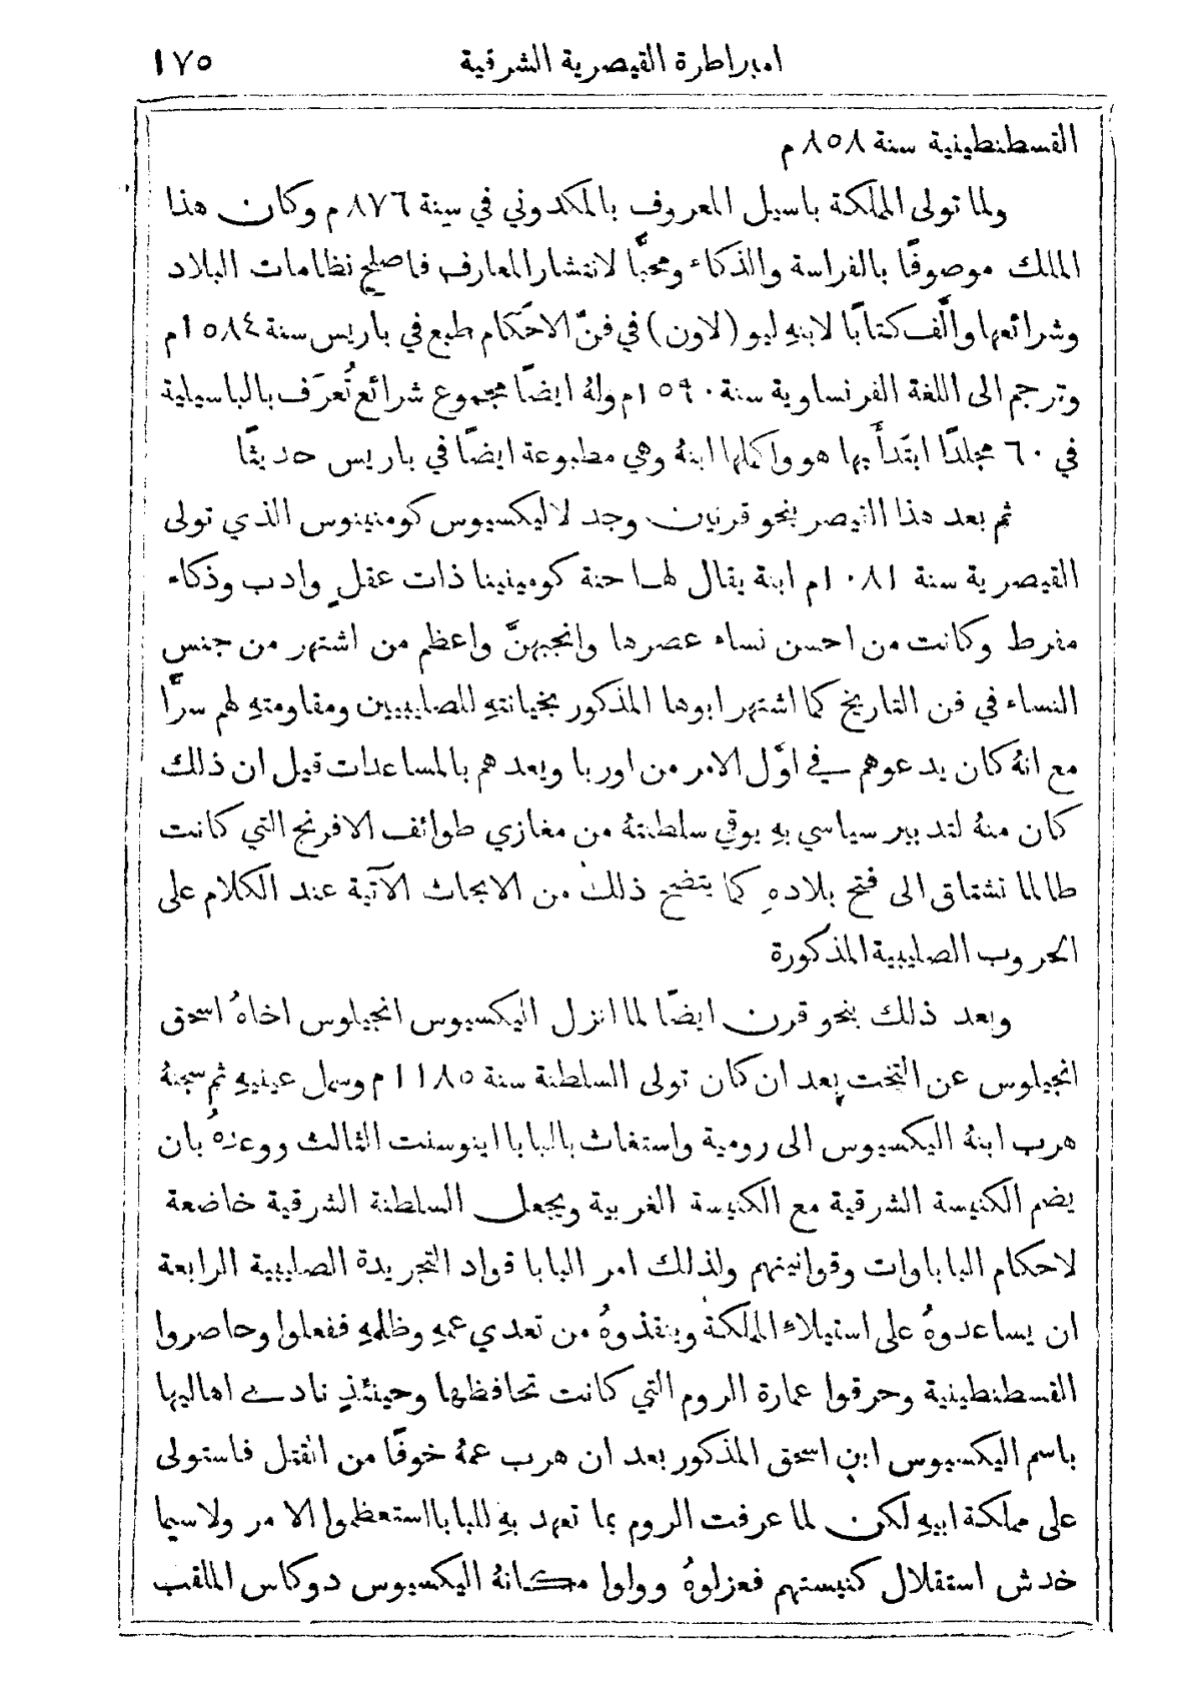 امبراطرة القيصرية الشرقية ١٧٥
القسطنطينية سنة ٨٥٨ م
ولما تولى المملكة باسيل المعروف بالمكدوني في سنة ٨٧٦ م وكان هذا
الملك موصوفًا بالفراسة والذكاء ومحبًّا لانتشار المعارف فاصلح نظامات البلاد
وشرائعها والَّف كتابًا لابنهِ ليو (لاون) في فنّ الاحكام طبع في باريس سنة ١٥٨٤م
وترجم الى اللغة الفرنساوية سنة ١٥٩٠م ولهُ ايضًا مجموع شرائع تُعرَف بالباسيلية
في ٦٠ مجلدًا ابتدأ بها هو واكملها ابنهُ وهي مطبوعة ايضًا في باريس حديثًا
ثم بعد هذا القيصر بنحو قرنين وجد لاليكسيوس كومنينوس الذي تولى
القيصرية سنة ١٠٨١م ابنة يقال لها حنة كومينينا ذات عقلٍ وادب وذكاء
مفرط وكانت من احسن نساء عصرها وانجبهنَّ واعظم من اشتهر من جنس
النساء في فن التاريخ كما اشتهر ابوها المذكور بخيانتهِ للصليبيين ومقاومتهِ لهم سرًّا
مع انهُ كان يدعوهم في اوَّل الامر من اوربا ويعدهم بالمساعدات قيل ان ذلك
كان منهُ لتدبير سياسي بهِ يوقي سلطنتهُ من مغازي طوائف الافرنج التي كانت
طالما تشتاق الى فتح بلادهِ كما يتضح ذلك من الابحاث الآتية عند الكلام على
الحروب الصليبية المذكورة
وبعد ذلك بنحو قرن ايضًا لما انزل اليكسيوس انجيلوس اخاهُ اسحق
انجيلوس عن التخت بعد ان كان تولى السلطنة سنة ١١٨٥ م وسمل عينيهِ ثم سجنهُ
هرب ابنهُ اليكسيوس الى رومية واستغاث بالبابا اينوسنت الثالث ووعدهُ بان
يضم الكنيسة الشرقية مع الكنيسة الغربية ويجعل السلطنة الشرقية خاضعة
لاحكام الباباوات وقوانينهم ولذلك امر البابا قواد التجريدة الصليبية الرابعة
ان يساعدوهُ على استيلاءِ المملكة وينقذوهُ من تعدي عمهِ وظلمهِ ففعلوا وحاصروا
القسطنطينية وحرقوا عمارة الروم التي كانت تحافظها وحينئذٍ نادى اهاليها
باسم اليكسيوس ابن اسحق المذكور بعد ان هرب عمهُ خوفًا من القتل فاستولى
على مملكة ابيهِ لكن لما عرفت الروم بما تعهد بهِ للبابا استعظموا الامر ولاسيما
خدش استقلال كنيستهم فعزلوهُ وولوا مكانهُ اليكسيوس دوكاس الملقب